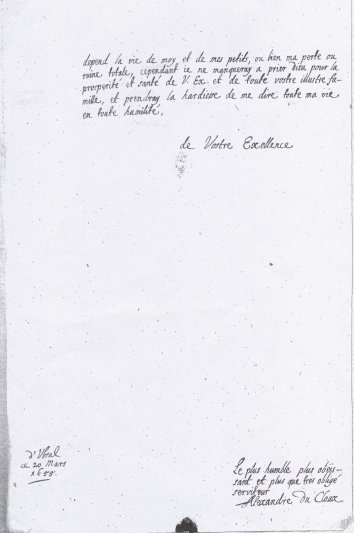 depend la vie de moy et de mes petits, ou bien ma perte ou
ruine totale, cependant ie ne manqueray a prier dieu pour la
prosperité et santé de V. Ex. et de toute vostre illustre fa-
mille, et prendray la hardiesse de me dire toute ma vie
en toute humilité,
de Vostre Excellence
ce 20 Mars
1655.
Le plus humble plus obeis-
sant et plus que tres obligé
serviteur
Alexandre du Cloux